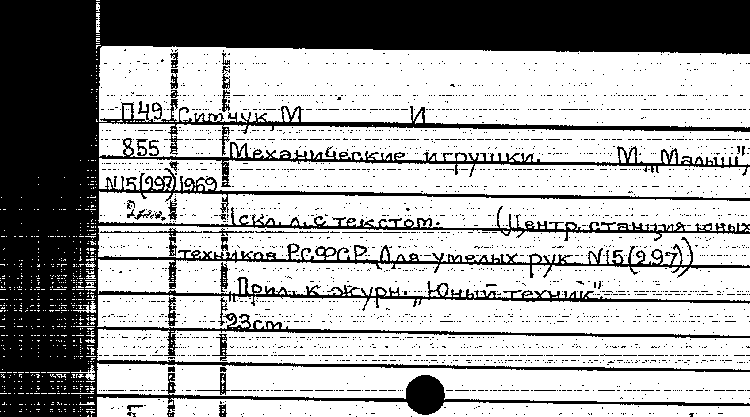 П49 Ситчук, М И
855 Механические игрушки. М., „Малыш",
N15(297) 1969
2 экз. 1скл. л. с текстом. (Центр. станция юных
техников РСФСР. Для умелых рук. N15(297))
„Прил. к журн. „Юный техник".
23см.